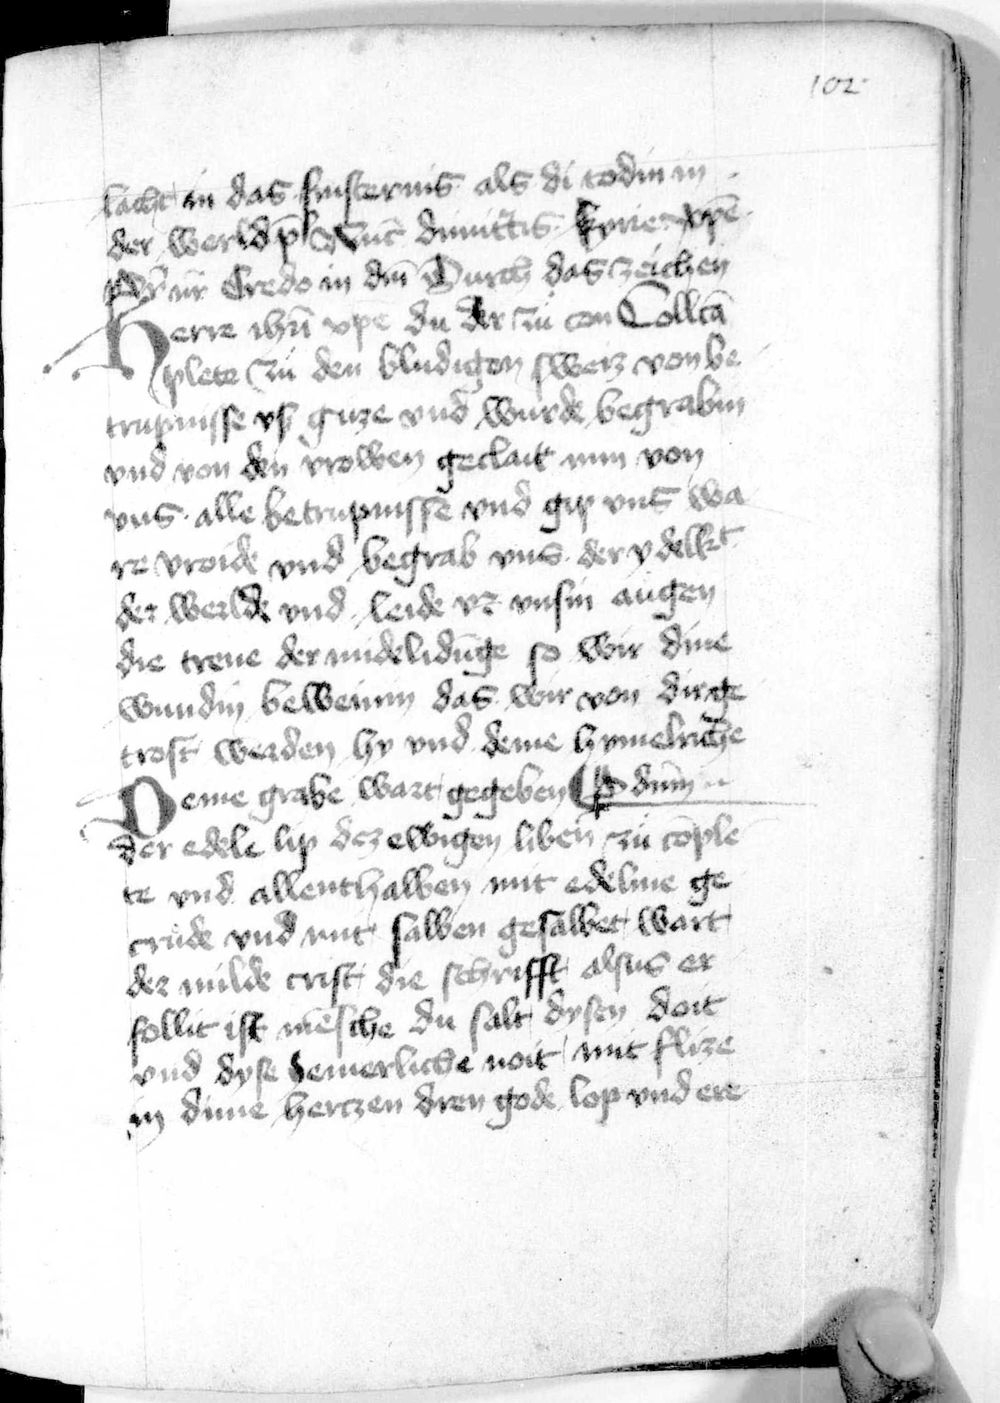 102
lacht in das finsternis als di todin in
der werld p̄s Nūc dimittis kyrie xpē
pr̄ nr̄ Credo in dm̄ Durch das zeichen
Herre ihū xpe du der zū con Collcā
plete zū den bludigen sweiz von be
trupnisse vz guze vnd wurde begrabin
vnd von den vrowen geclait nim von
vns alle betrupnisse vnd gip vns wa
re vroide vnd begrab vns der ydelkt
der werlde vnd leide vz vnsin augen
die trene der midelidūge so wir dine
wundin beweinin das wir von dir ge
trost werden hy vnd deme hymelriche
Deme grabe wart gegeben Ad
der edele lip dez ewigen liben zū cōple
te vnd allenthalben mit edelme ge
crude vnd mit salben gesalbet wart
der milde crist die schrifft alsus er
follit ist mēsche du salt dysen doit
vnd dyse iemerliche noit mit flize
in dime hertzen dren gode lop vnd ere